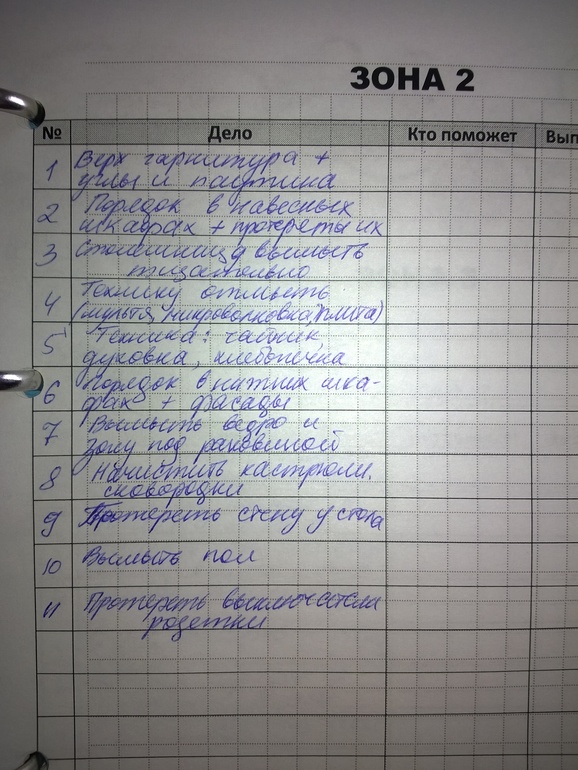 ЗОНА 2
№ Дело Кто поможет Вып
1 Верх гарнитура +
углы и паутина
2 Порядок в навесных
шкафах + протереть их
3 Столешницу вымыть
тщательно
4 Технику отмыть
(мульти, микроволновка, плита)
5 Техника: чайник,
духовка, хлебопечка
6 Порядок в нижних шка-
фах + фасады
7 Вымыть ведро и
зону под раковиной
8 Начистить кастрюли,
сковородки
9 Протереть стену у стола
10 Вымыть пол
11 Протереть выключатели
розетки